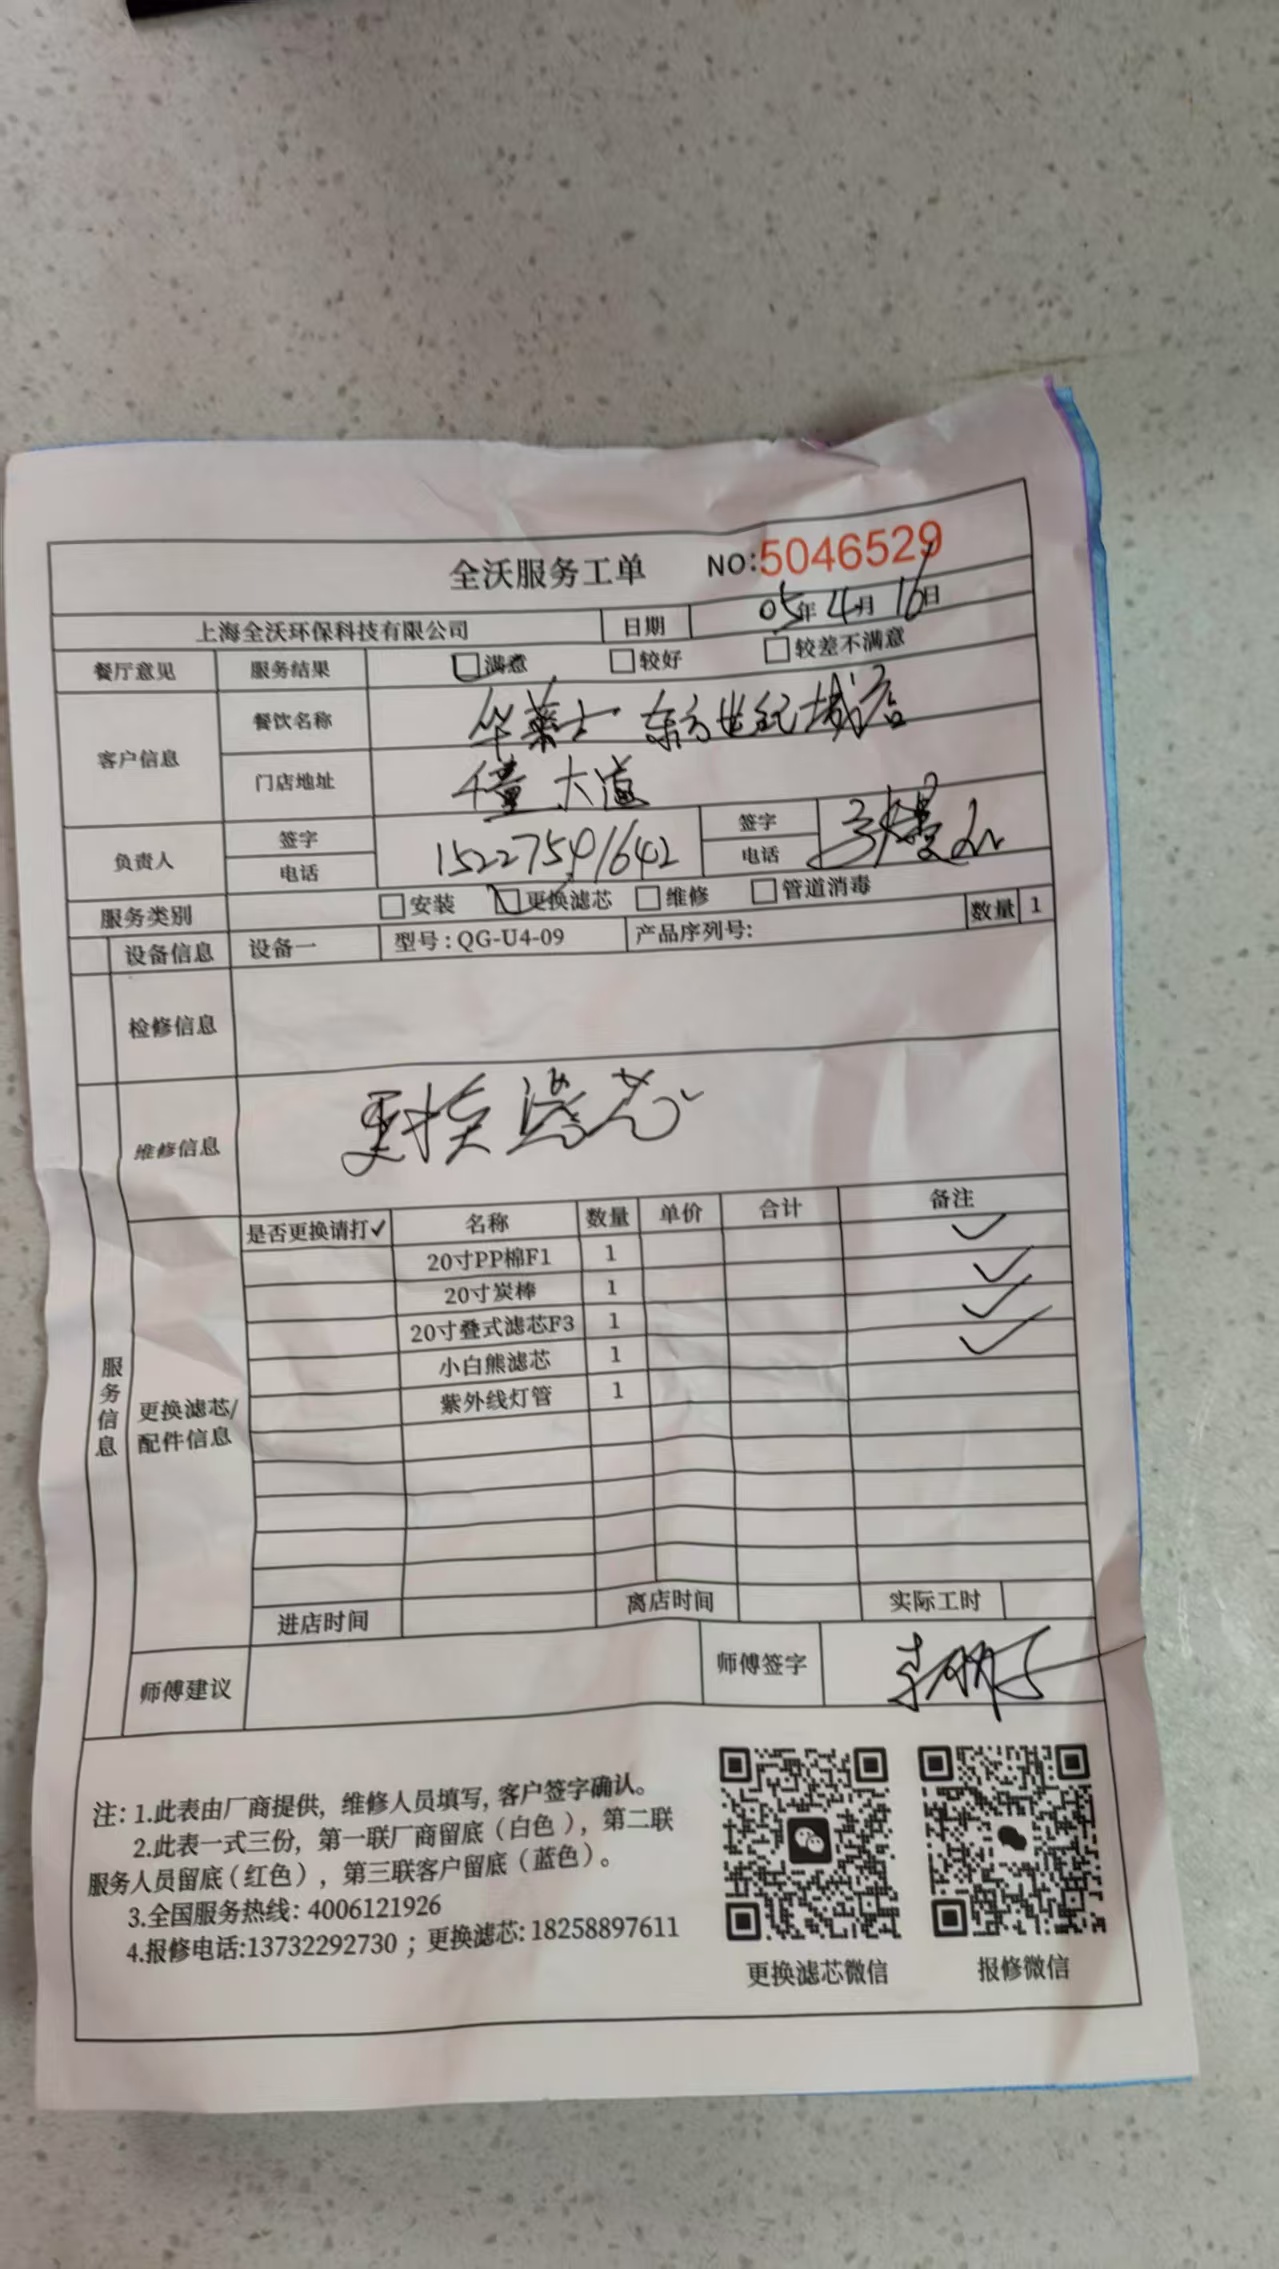 全沃服务工单 NO:5046529
上海全沃环保科技有限公司 日期 05年4月16日
餐厅意见 服务结果 满意 较好 较差不满意
客户信息 餐饮名称 华莱士 东方世纪城店
门店地址 大道
负责人 签字 签字
电话 15227591642 电话
服务类别 安装 更换滤芯 维修 管道消毒
设备信息 设备一 型号:QG-U4-09 产品序列号: 数量 1
检修信息
维修信息 更换滤芯
服务信息
更换滤芯/配件信息
是否更换请打✓ 名称 数量 单价 合计 备注
20寸PP棉F1 1 ✓
20寸炭棒 1 ✓
20寸叠式滤芯F3 1 ✓
小白熊滤芯 1 ✓
紫外线灯管 1
进店时间 离店时间 实际工时
师傅建议 师傅签字
注: 1.此表由厂商提供, 维修人员填写, 客户签字确认。
2.此表一式三份, 第一联厂商留底(白色), 第二联
服务人员留底(红色), 第三联客户留底(蓝色)。
3.全国服务热线: 4006121926
4.报修电话:13732292730 ; 更换滤芯: 18258897611
更换滤芯微信 报修微信